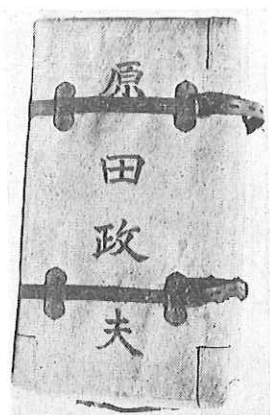 原田政夫